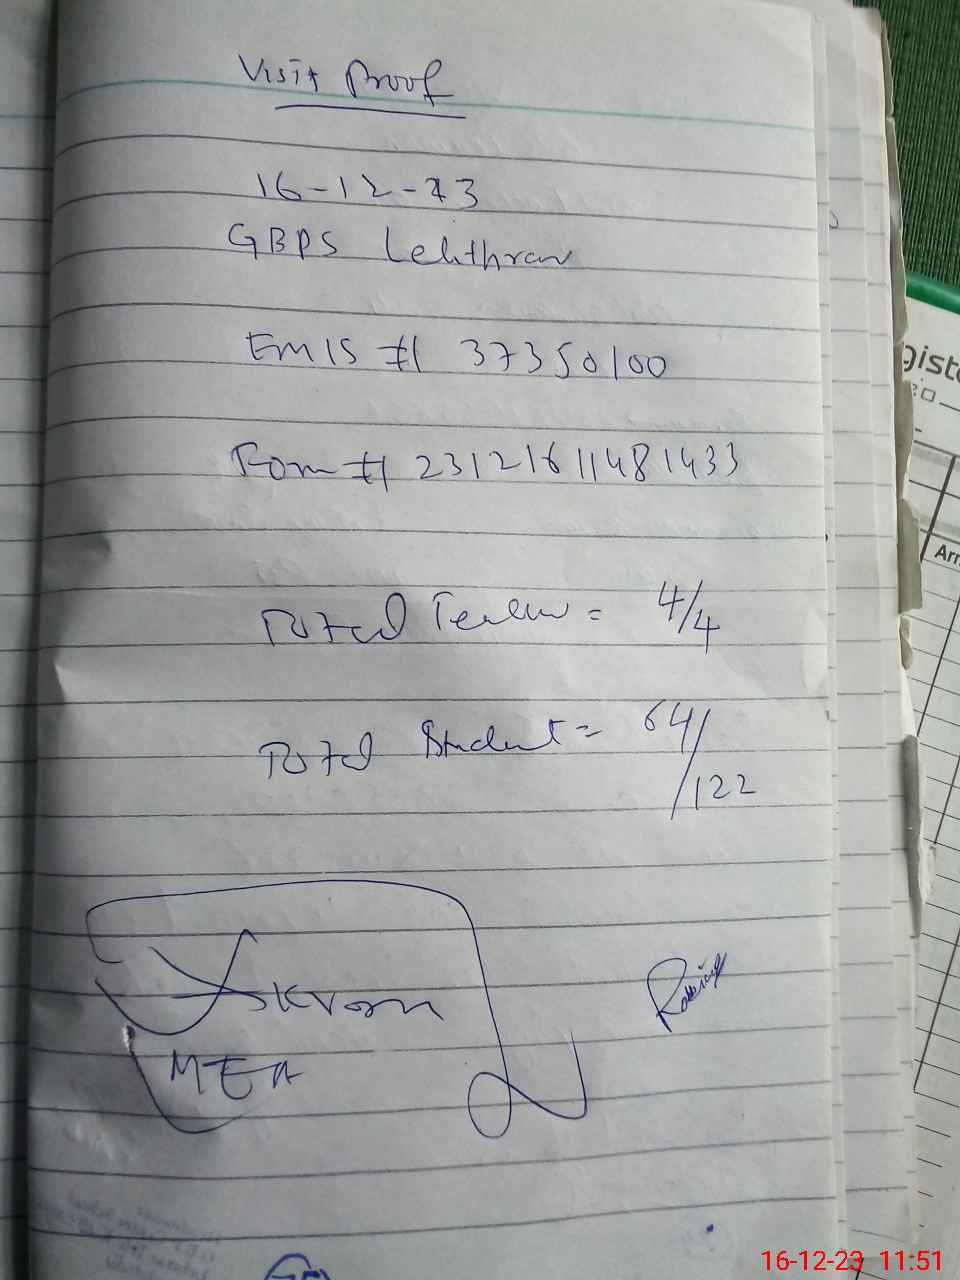 Visit Proof
16-12-23
GBPS Lehthrar
EMIS # 37350100
Form # 23121611481433
Total Teacher = 4/4
Total Student = 64/122
Ikram
MEA
giste
Arr
16-12-23 11:51